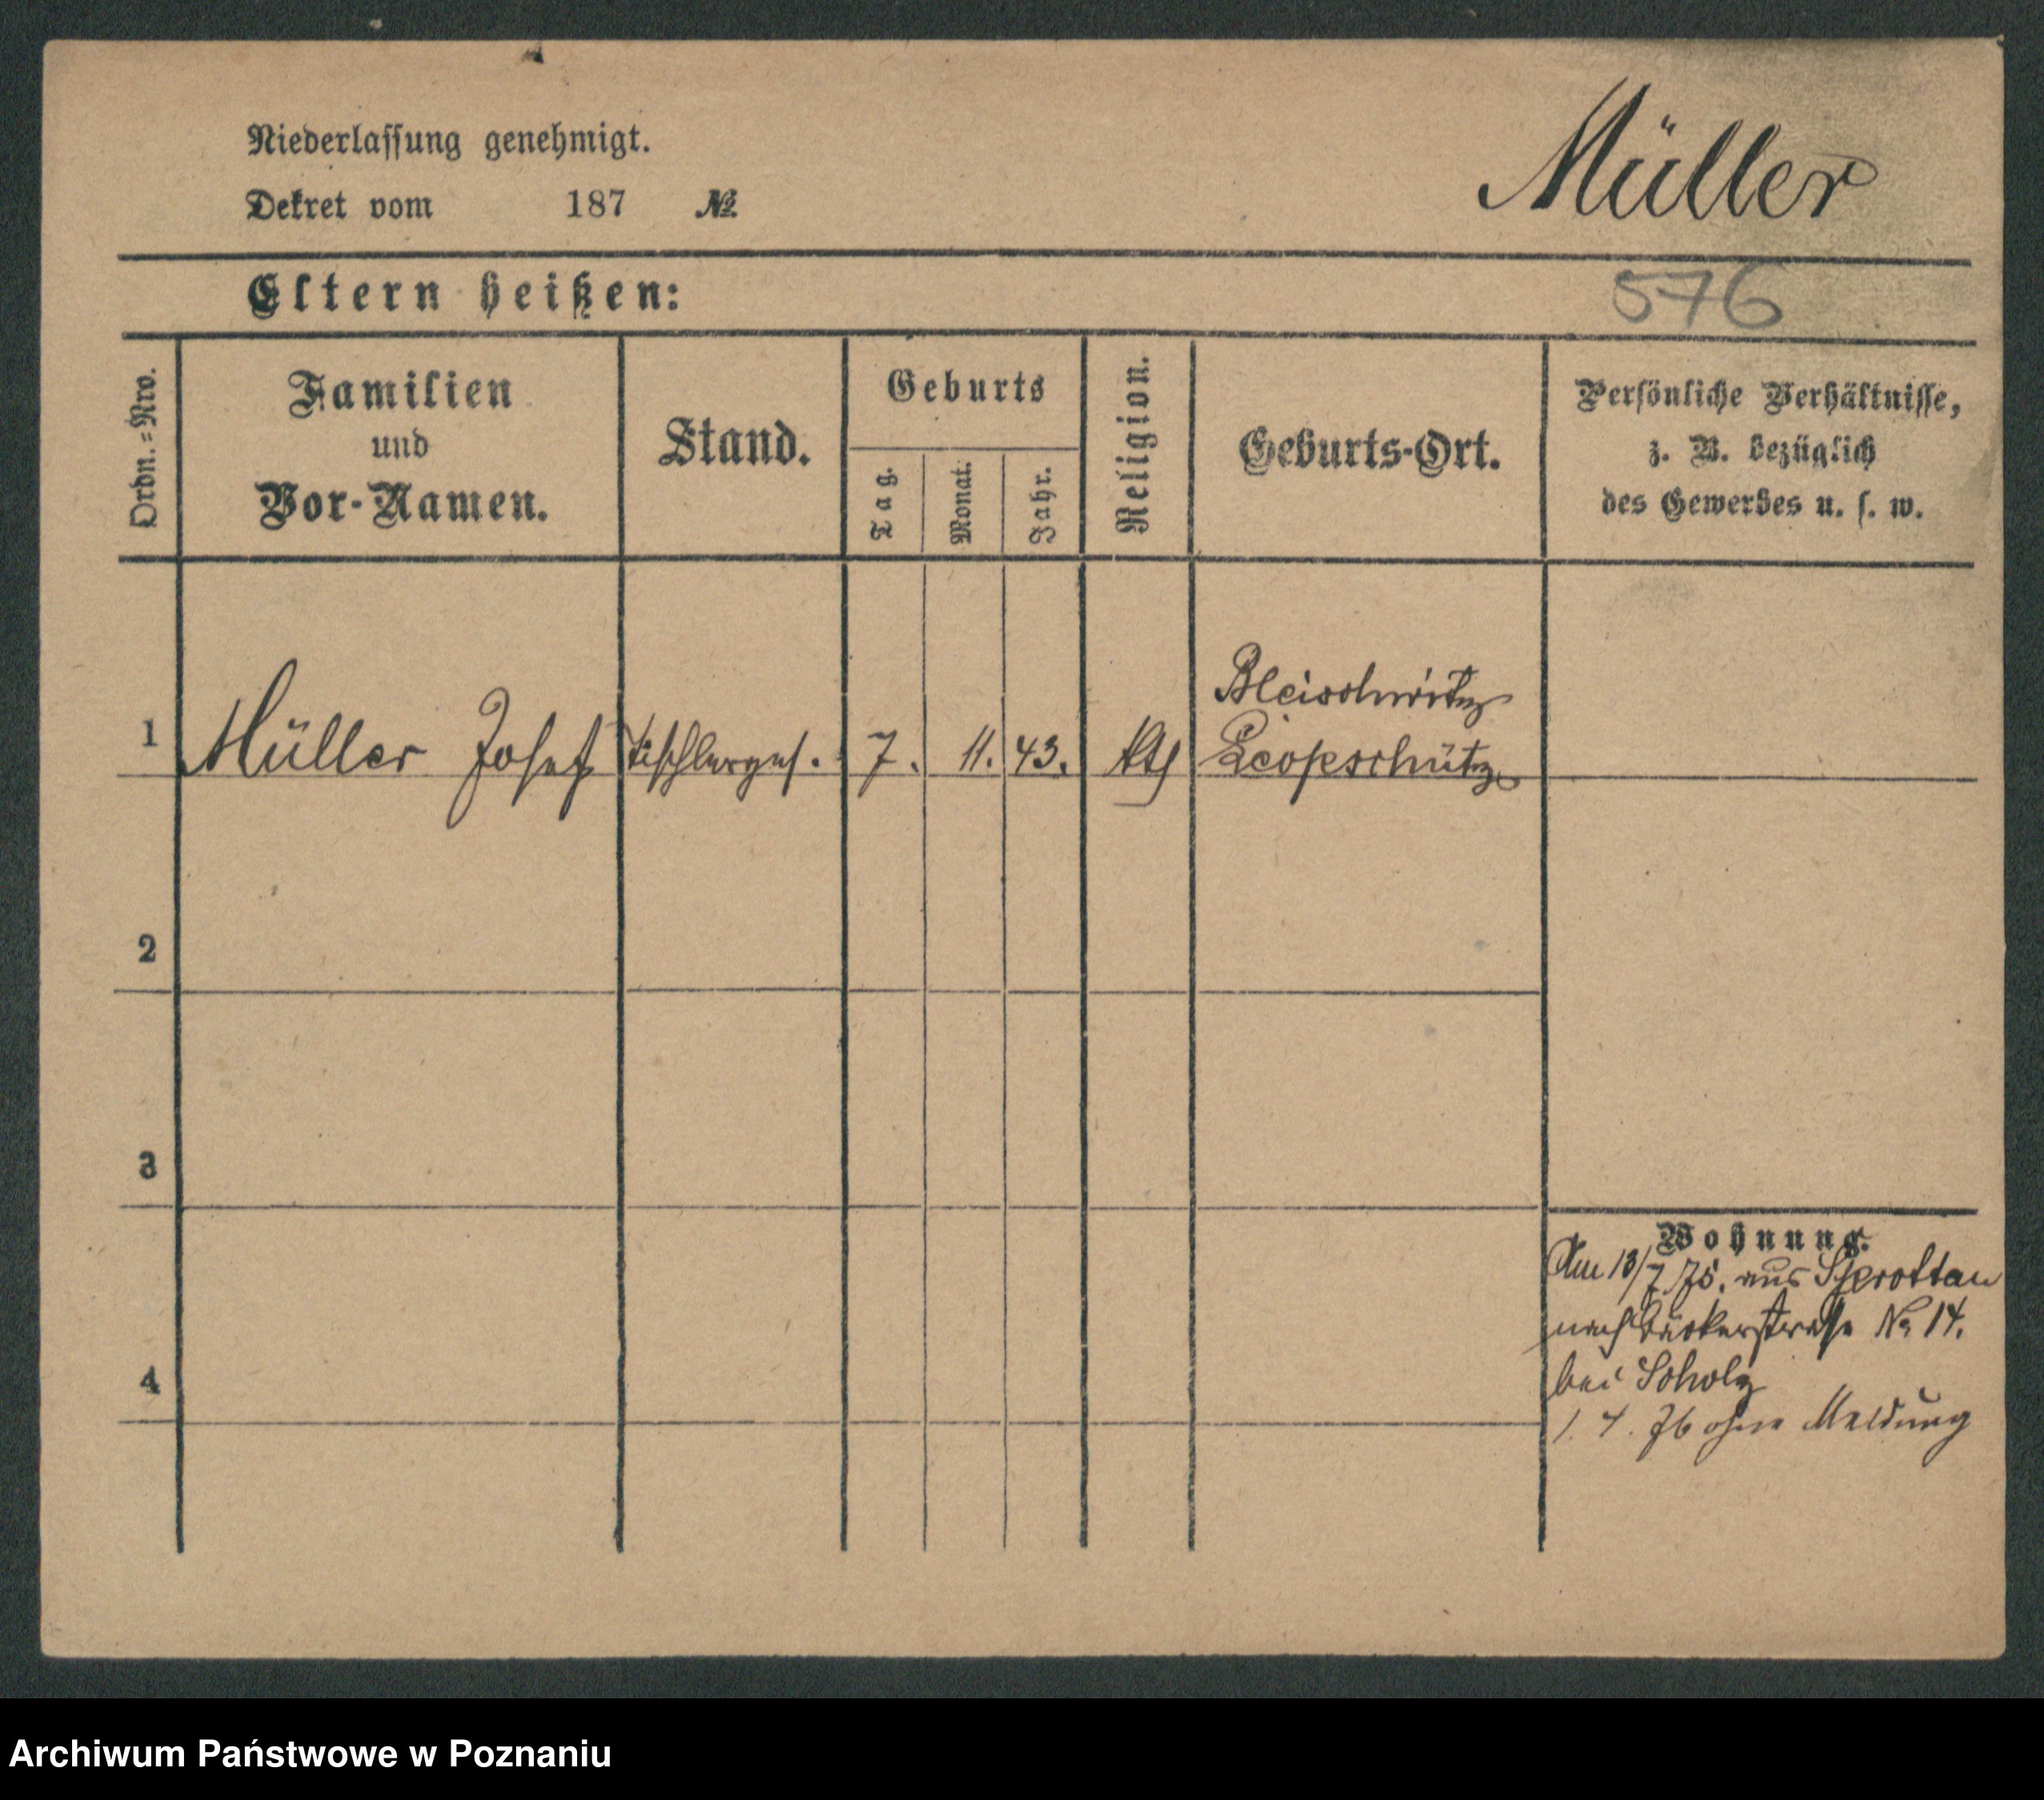 Niederlassung genehmigt.
Müller
Dekret vom 187 №
Eltern heißen:
576
Ordn.=Nro.
Familien
und
Vor-Namen.
Stand.
Geburts
Tag.
Monat.
Jahr.
Religion.
Geburts-Ort.
Persönliche Verhältnisse,
z. B. bezüglich
des Gewerbes u. s. w.
1 Müller Josef Tischlerges. 7. 11. 43. kth Bleischwitz
Leopschütz
2
3
4
Wohnung.
Am 13/7 75. aus Sprottau
nach Bäckerstraße No 14.
bei Scholz
1. 4. 76 ohne Meldung
Archiwum Państwowe w Poznaniu